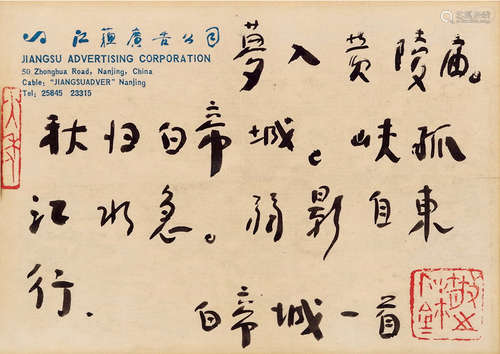 江蘇廣告公司
JIANGSU ADVERTISING CORPORATION
50 Zhonghua Road, Nanjing, China
Cable: "JIANGSUADVER" Nanjing
Tel: 25845 23315
夢入黄陵庙。
秋归白帝城。峡孤
江水急。弱影自東
行.
白帝城一首